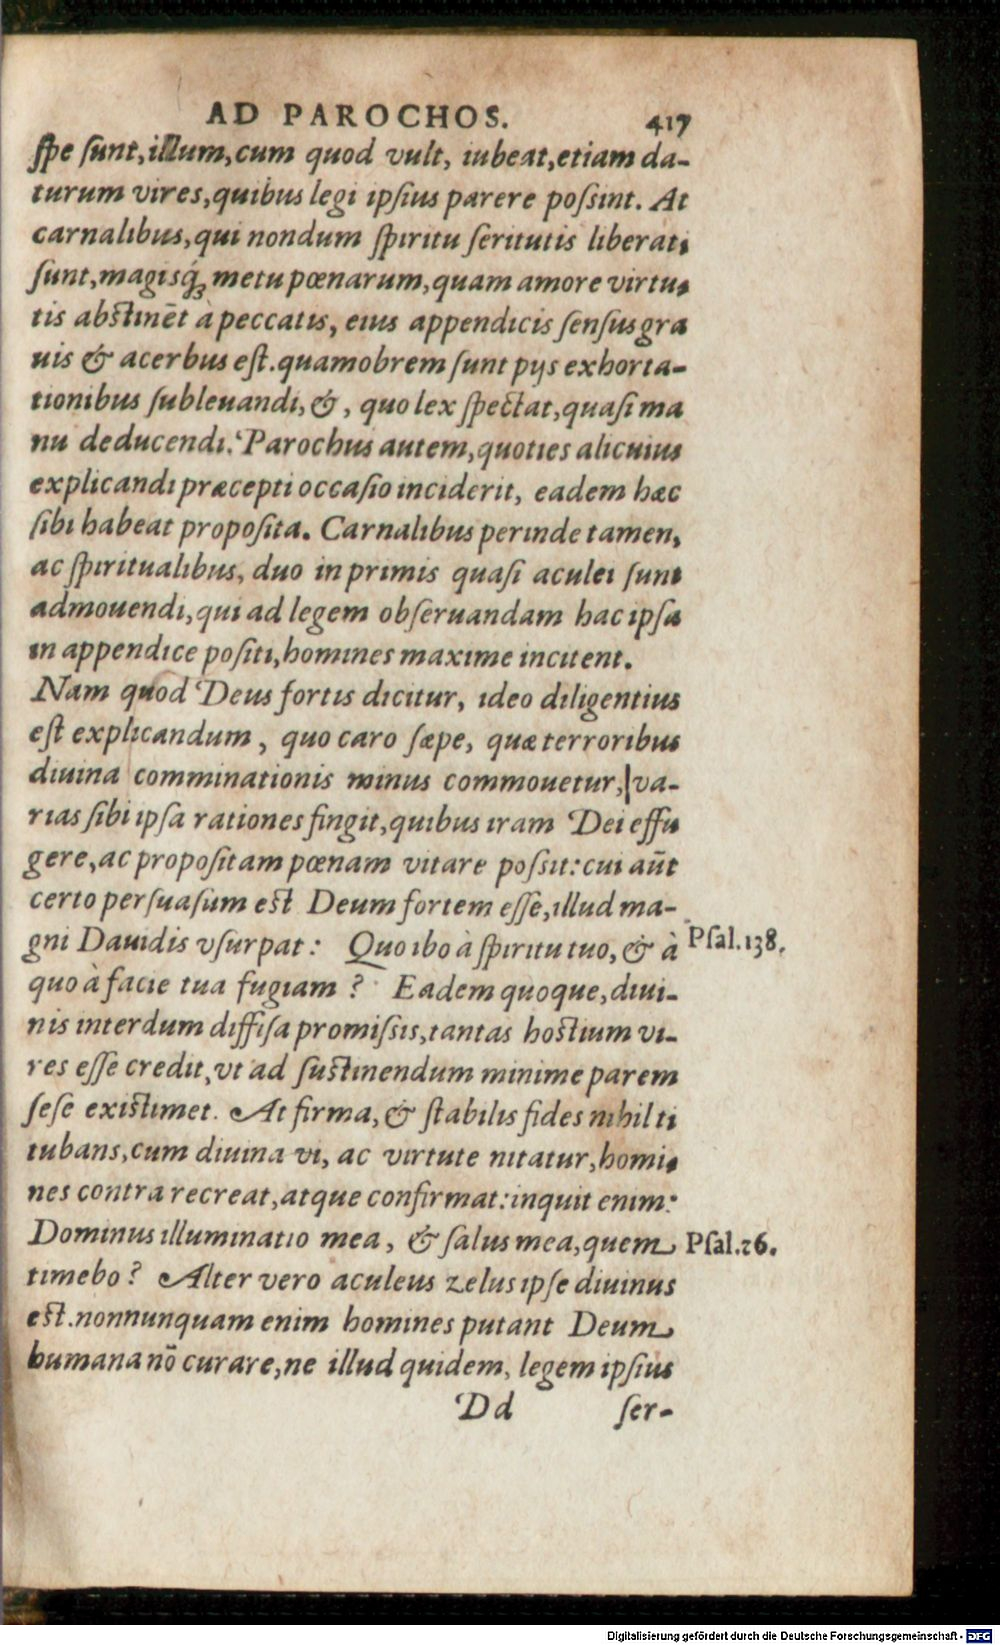 AD PAROCHOS. 417
ſpe ſunt, illum, cum quod vult, iubeat, etiam da-
turum vires, quibus legi ipſius parere poſsint. At
carnalibus, qui nondum ſpiritu ſeritutis liberati
ſunt, magisq́ꝫ metu pœnarum, quam amore virtu-
tis abſtinēt à peccatis, eius appendicis ſenſus gra
uis & acerbus eſt. quamobrem ſunt pijs exhorta-
tionibus ſubleuandi, &, quo lex ſpectat, quaſi ma
nu deducendi. Parochus autem, quoties alicuius
explicandi præcepti occaſio inciderit, eadem hæc
ſibi habeat propoſita. Carnalibus perinde tamen,
ac ſpiritualibus, duo in primis quaſi aculei ſunt
admouendi, qui ad legem obſeruandam hac ipſa
in appendice poſiti, homines maxime incitent.
Nam quod Deus fortis dicitur, ideo diligentius
eſt explicandum, quo caro ſæpe, quæ terroribus
diuina comminationis minus commouetur, va-
rias ſibi ipſa rationes fingit, quibus iram Dei effu
gere, ac propoſitam pœnam vitare poſsit: cui aūt
certo perſuaſum eſt Deum fortem eſſe, illud ma-
gni Dauidis vſurpat: Quo ibo à ſpiritu tuo, & à
Pſal. 138.
quo à facie tua fugiam? Eadem quoque, diui-
nis interdum diffiſa promiſsis, tantas hoſtium vi-
res eſſe credit, vt ad ſuſtinendum minime parem
ſeſe exiſtimet. At firma, & ſtabilis fides nihil ti
tubans, cum diuina vi, ac virtute nitatur, homi-
nes contra recreat, atque confirmat: inquit enim:
Dominus illuminatio mea, & ſalus mea, quem
Pſal. 26.
timebo? Alter vero aculeus zelus ipſe diuinus
eſt. nonnunquam enim homines putant Deum
humana nō curare, ne illud quidem, legem ipſius
Dd ſer-
Digitalisierung gefördert durch die Deutsche Forschungsgemeinschaft - DFG